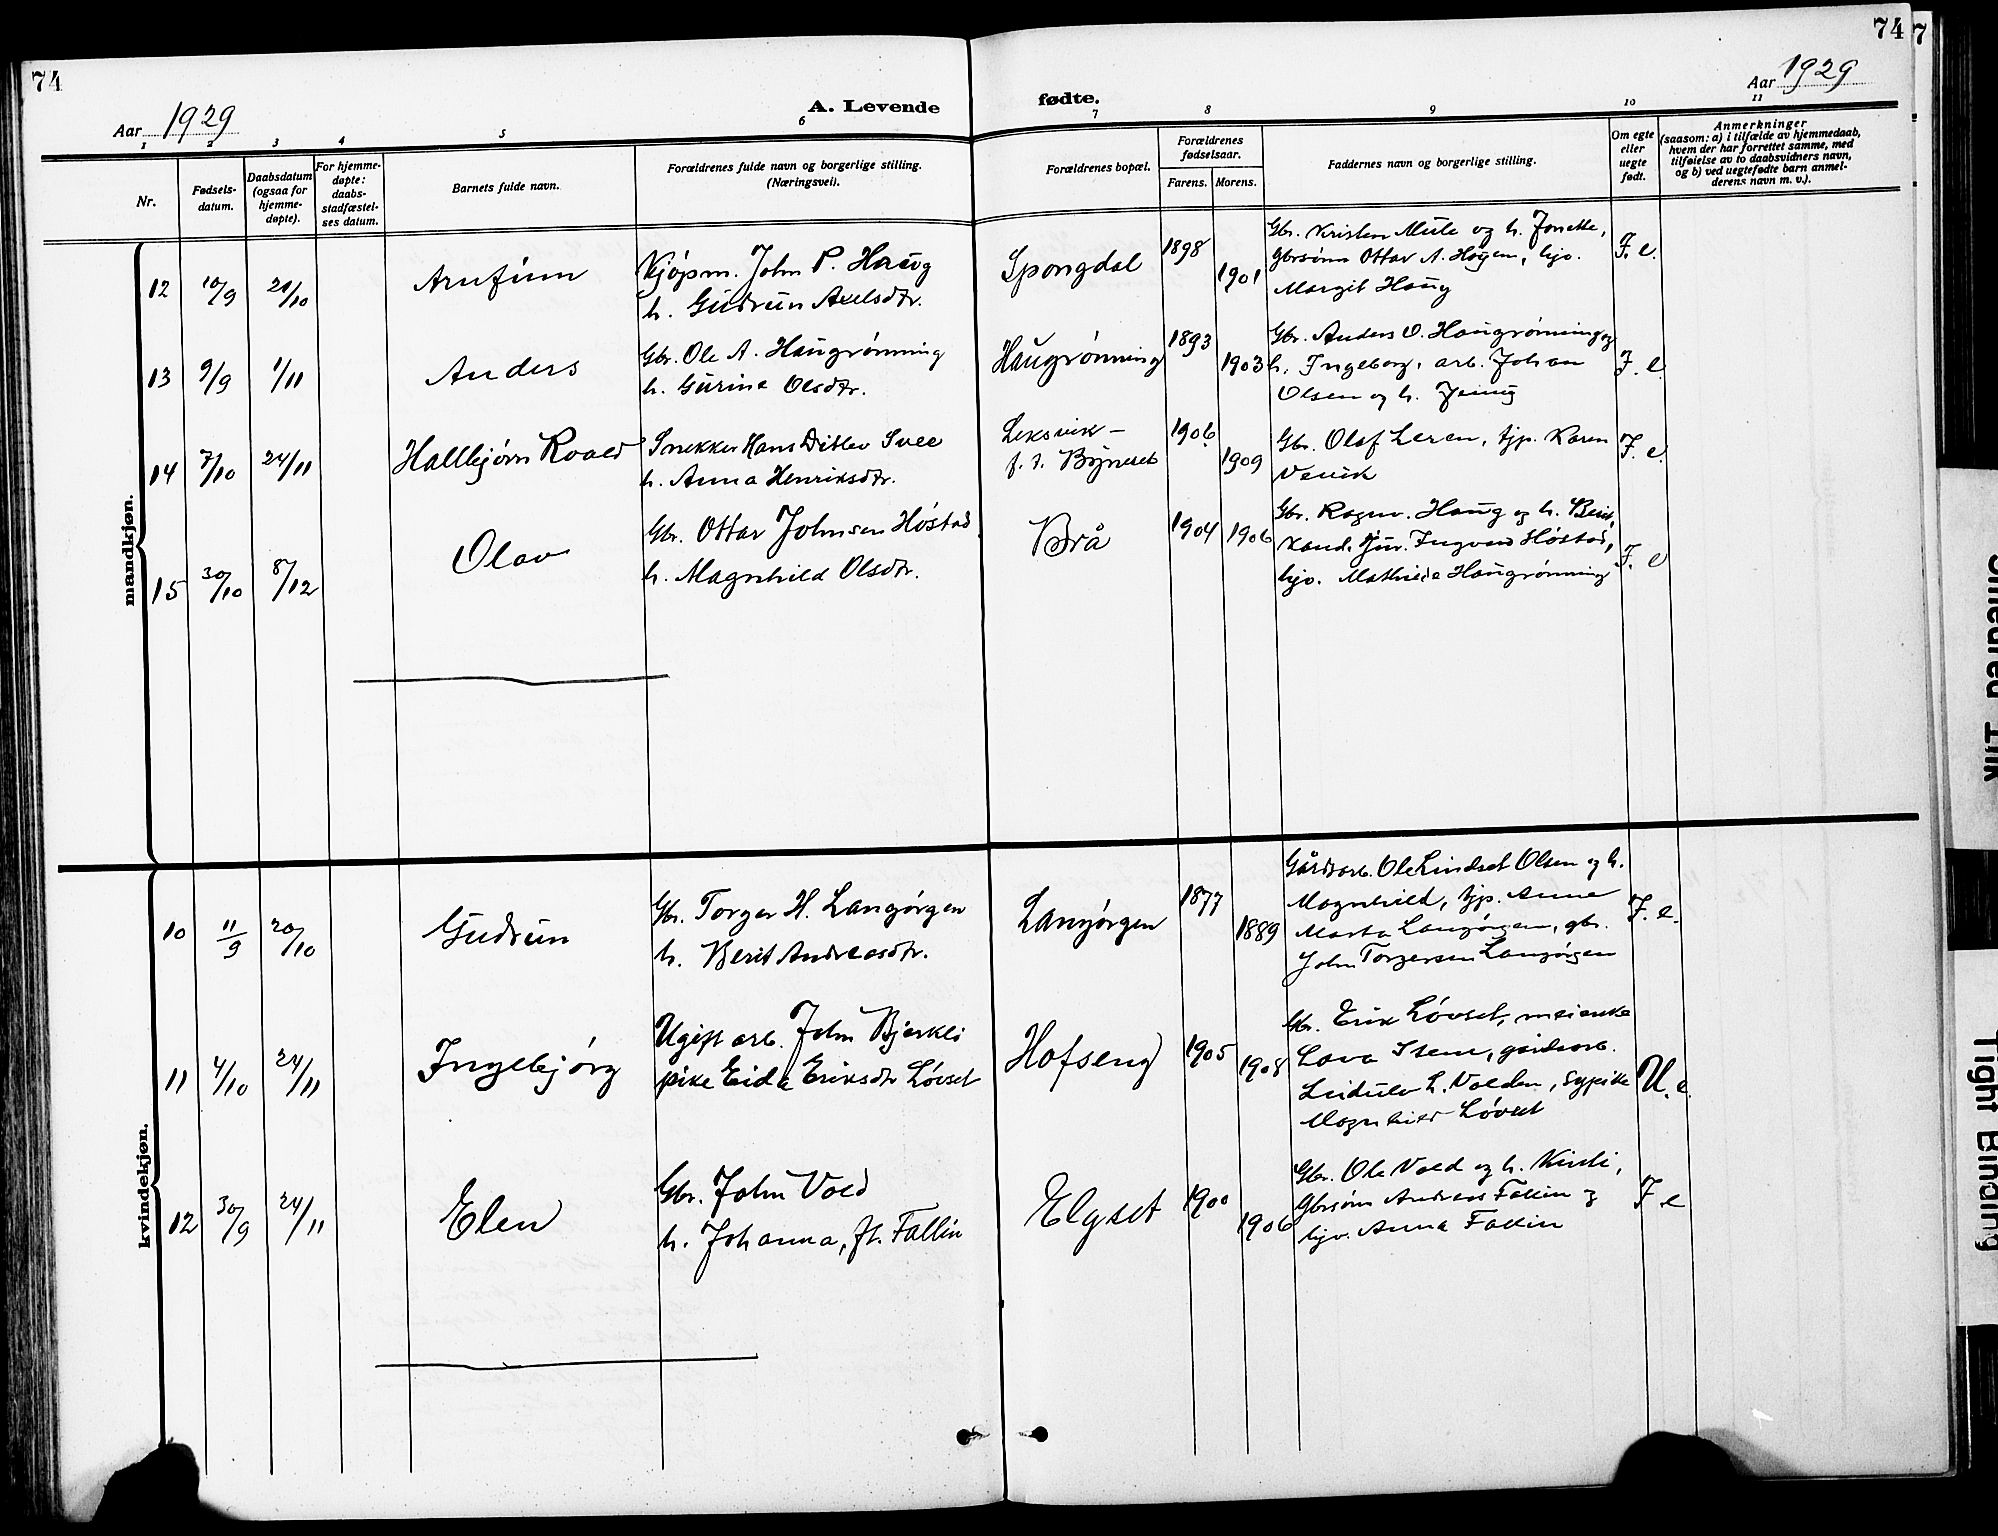 74
74
7
Aar 1929
A. Levende
fødte.
Aar 1929
1 2 3 4 5 6 7 8 9 10 11
Nr.
Fødsels-
datum.
Daabsdatum
(ogsaa for
hjemme-
døpte).
For hjemme-
døpte:
daabs-
stadfæstel-
ses datum.
Barnets fulde navn.
Forældrenes fulde navn og borgerlige stilling.
(Næringsvei).
Forældrenes bopæl.
Forældrenes
fødselsaar.
Farens. Morens.
Faddernes navn og borgerlige stilling.
Om egte
eller
uegte
født.
Anmerkninger
(saasom: a) i tilfælde av hjemmedaab,
hvem der har forrettet samme, med
tilføielse av to daabsvidners navn,
og b) ved uegtefødte barn anmel-
derens navn m. v.).
mandkjøn.
12 10/9 20/10 Arnfinn
Kjøpm. John P. Haug
h. Gudrun Axelsdtr.
Spongdal 1898 1901
Gbr. Kristen Mule og h. Jonette,
gbrsønn Ottar A. Høgen, hjv.
Margit Haug
F. e.
13 9/9 1/11 Anders
Gbr. Ole A. Haugrønning
h. Gurine Olsdtr.
Haugrønning 1893 1903
Gbr. Anders O. Haugrønning og
h. Ingeborg, arb. Johan
Olsen og h. Jenny
F. e.
14 7/10 24/11 Hallbjørn Roald
Snekker Hans Ditlev Svee
h. Anna Henriksdtr.
Leksvik –
f. t. Byneset
1906 1909
Gbr. Olaf Leren, tjp. Karen
F. e.
15 30/10 8/12 Olav
Gbr. Ottar Johnsen Høstad
h. Magnhild Olsdtr.
Brå 1904 1906
Gbr. Ragnv. Haug og h. Berit,
kand. jur. Ingvald Høstad,
hjv. Mathilde Haugrønning
F. e
kvindekjøn.
10 11/9 20/10 Gudrun
Gbr. Torger H. Langørgen
h. Berit Andreasdtr.
Langørgen 1877 1889
Gårdsarb. Ole Lindset Olsen og h.
Magnhild, tjp. Anne
Marta Langørgen, gbr.
John Torgersen Langørgen
F. e.
11 4/10 24/11 Ingebjørg
Ugift arb. John Bjerkli
pike Eida Eriksdtr Løvset
Hofseng 1905 1908
Gbr. Erik Løvset, meierske
Lava Stene, gårdsarb.
Leidulv L. Volden, sypike
Magnhild Løvset
U. e.
12 30/9 24/11 Elen
Gbr. John Vold
h. Johanna, ft. Fallin
Elgset 1900 1906
Gbr. Ole Vold og h. Kirsti,
Gbrsønn Andreas Fallin og
hjv. Anna Fallin
F e
Tight Binding